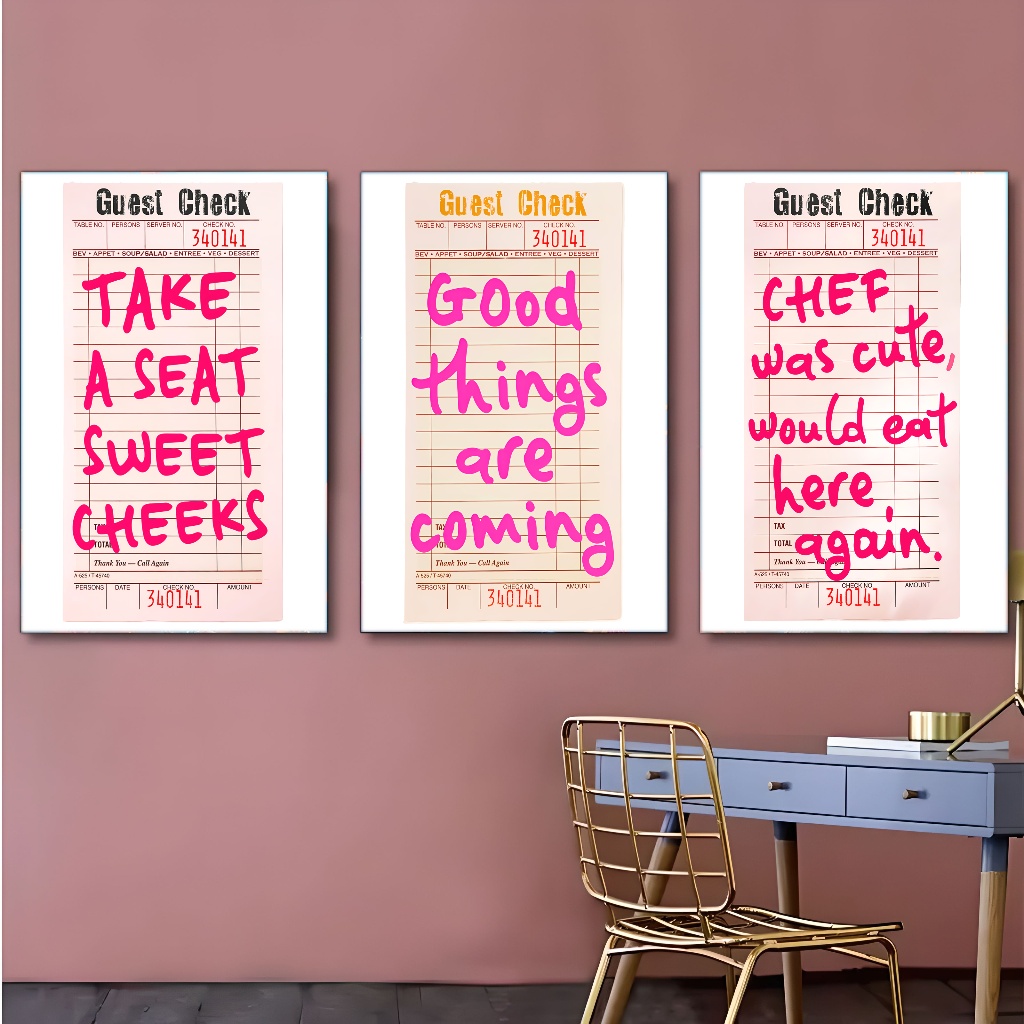 Guest Check
TABLE NO. PERSONS SERVER NO. CHECK NO.
340141
BEV • APPET • SOUP/SALAD • ENTREE • VEG • DESSERT
TAKE
A SEAT
SWEET
CHEEKS
TAX
TOTAL
Thank You — Call Again
A-525 / T-45740
PERSONS DATE CHECK NO. AMOUNT
340141
Guest Check
TABLE NO. PERSONS SERVER NO. CHECK NO.
340141
BEV • APPET • SOUP/SALAD • ENTREE • VEG • DESSERT
Good
things
are
coming
TAX
TOTAL
Thank You — Call Again
A-525 / T-45740
PERSONS DATE CHECK NO. AMOUNT
340141
Guest Check
TABLE NO. PERSONS SERVER NO. CHECK NO.
340141
BEV • APPET • SOUP/SALAD • ENTREE • VEG • DESSERT
CHEF
was cute,
would eat
here
again.
TAX
TOTAL
Thank You —
A-525 / T-45740
PERSONS DATE CHECK NO. AMOUNT
340141